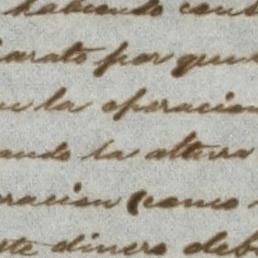 habiendo
arato por que
en la operacion
ando la altura
racion (como
este dinero deb